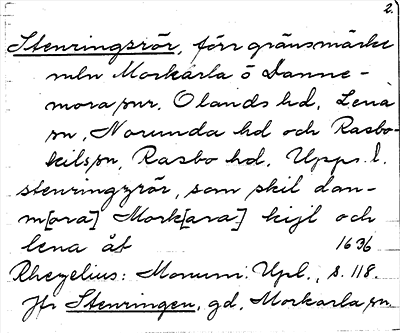 2.
Stenringsrör, förr gränsmärke
mln Morkarla o Danne-
mora snr, Olands hd, Lena
sn, Norunda hd och Rasbo-
kils sn, Rasbo hd, Upps. l.
stenringzrör, som skil dan-
m[ora] Mork[ara] kijl och
lena åt 1636
Rhezelius: Monum. Upl., s. 118.
Jfr Stenringen, gd, Morkarla sn.